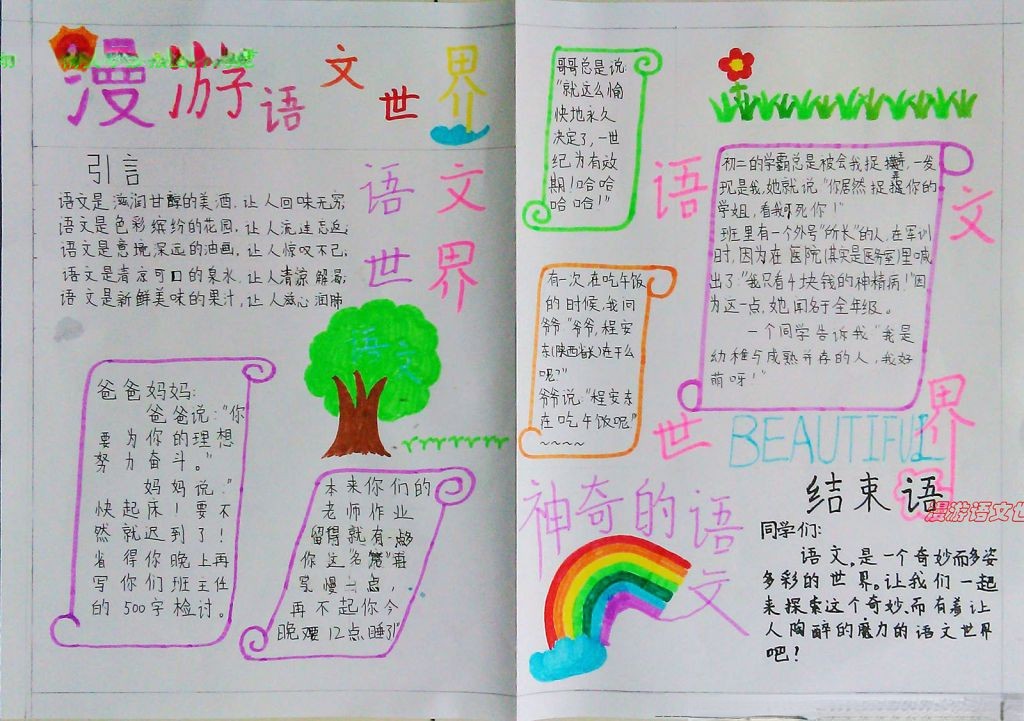 漫游语文世界
引言
语文是滋润甘醇的美酒,让人回味无穷
语文是色彩缤纷的花园,让人流连忘返;
语文是意境深远的油画,让人惊叹不已;
语文是清凉可口的泉水,让人清凉解暑;
语文是新鲜美味的果汁,让人滋心润肺
语文
世界
语文
爸爸妈妈:
爸爸说:“你
要为你的理想
努力奋斗。”
妈妈说:“
快起床!要不
然就迟到了!
省得你晚上再
写你们班主任
的500字检讨。
本来你们的
老师作业
留得就有一点多
你这名 再
写慢点,
再不起你今
晚要12点睡了!”
哥哥总是说:
“就这么愉
快地永久
决定了,一世
纪为有效
期!哈哈
哈哈!”
有一次在吃午饭
的时候,我问
爷爷“爷爷,程安
东(陕西省长)在干么
呢?”
爷爷说:“程安东
在吃午饭呢!”
~~~~
初二的学霸总是被会我捉弄,一发
现是我,她就说“你居然捉弄你的
学姐,看我不死你!”
班里有一个外号“所长”的人,在军训
时,因为在医院(其实是医务室)里喊
出了:“我只有4块钱的神精病!”因
为这一点,她闻名于全年级。
一个同学告诉我“我是
幼稚与成熟并存的人,我好
萌呀!”
语文
世界
BEAUTIFUL
神奇的语文
结束语
漫游语文世
同学们:
语文,是一个奇妙而多姿
多彩的世界。让我们一起
来探索这个奇妙而有着让
人陶醉的魔力的语文世界
吧!